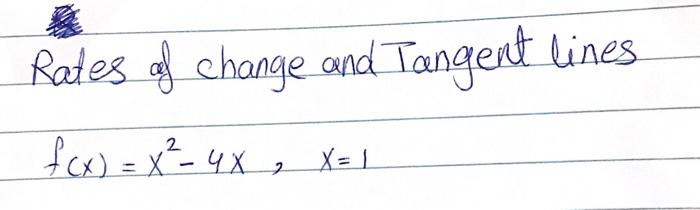 Rates of change and Tangent lines
f(x) = x² - 4x , x = 1